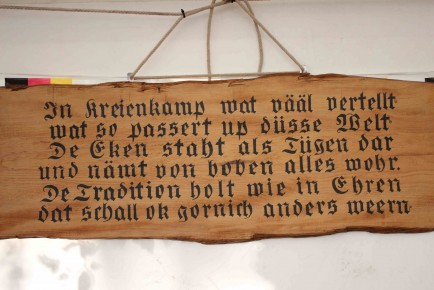 In Kreienkamp wat vääl vertellt
wat so passert up düsse Welt
De Eken staht als Tügen dar
und nämt von boben alles wohr.
De Tradition holt wie in Ehren
dat schall ok gornich anders weern.